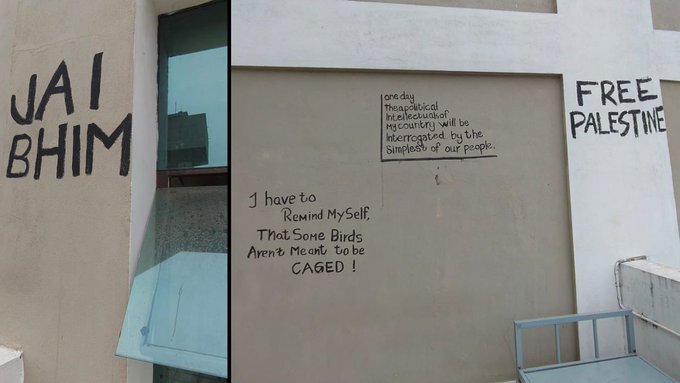 JAI
BHIM
one day
The apolitical
Intellectuals of
My country will be
Interrogated by the
Simplest of our people.
I have to
Remind MySelf,
That Some Birds
Aren't Meant to be
CAGED !
FREE
PALESTINE